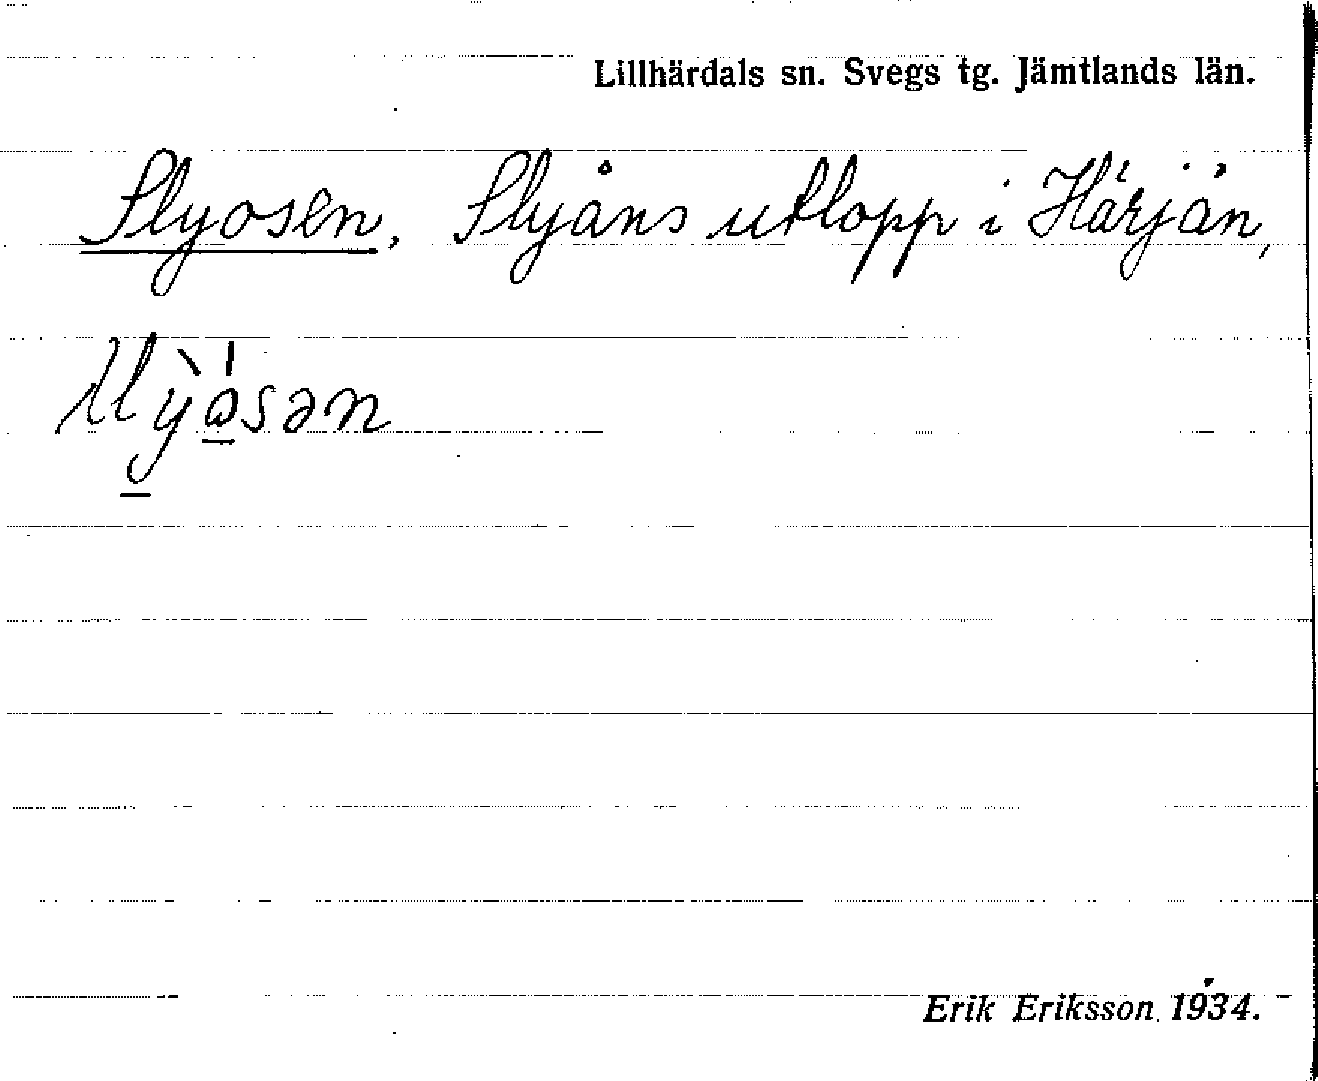 Lillhärdals sn. Svegs tg. Jämtlands län.
Slyosen, Slyåns utlopp i Härjån,
Erik Eriksson 1934.